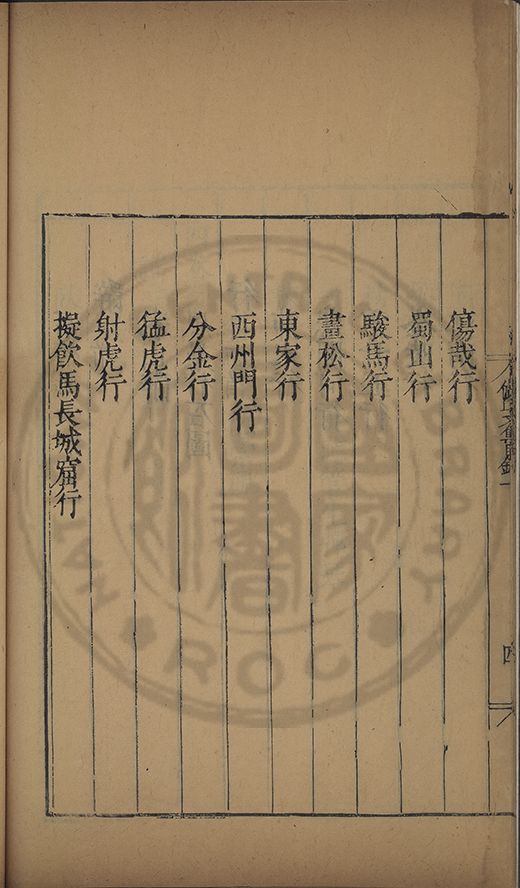 傷哉行
蜀山行
駿馬行
畫松行
東家行
西州門行
分金行
猛虎行
射虎行
擬飲馬長城窟行
四